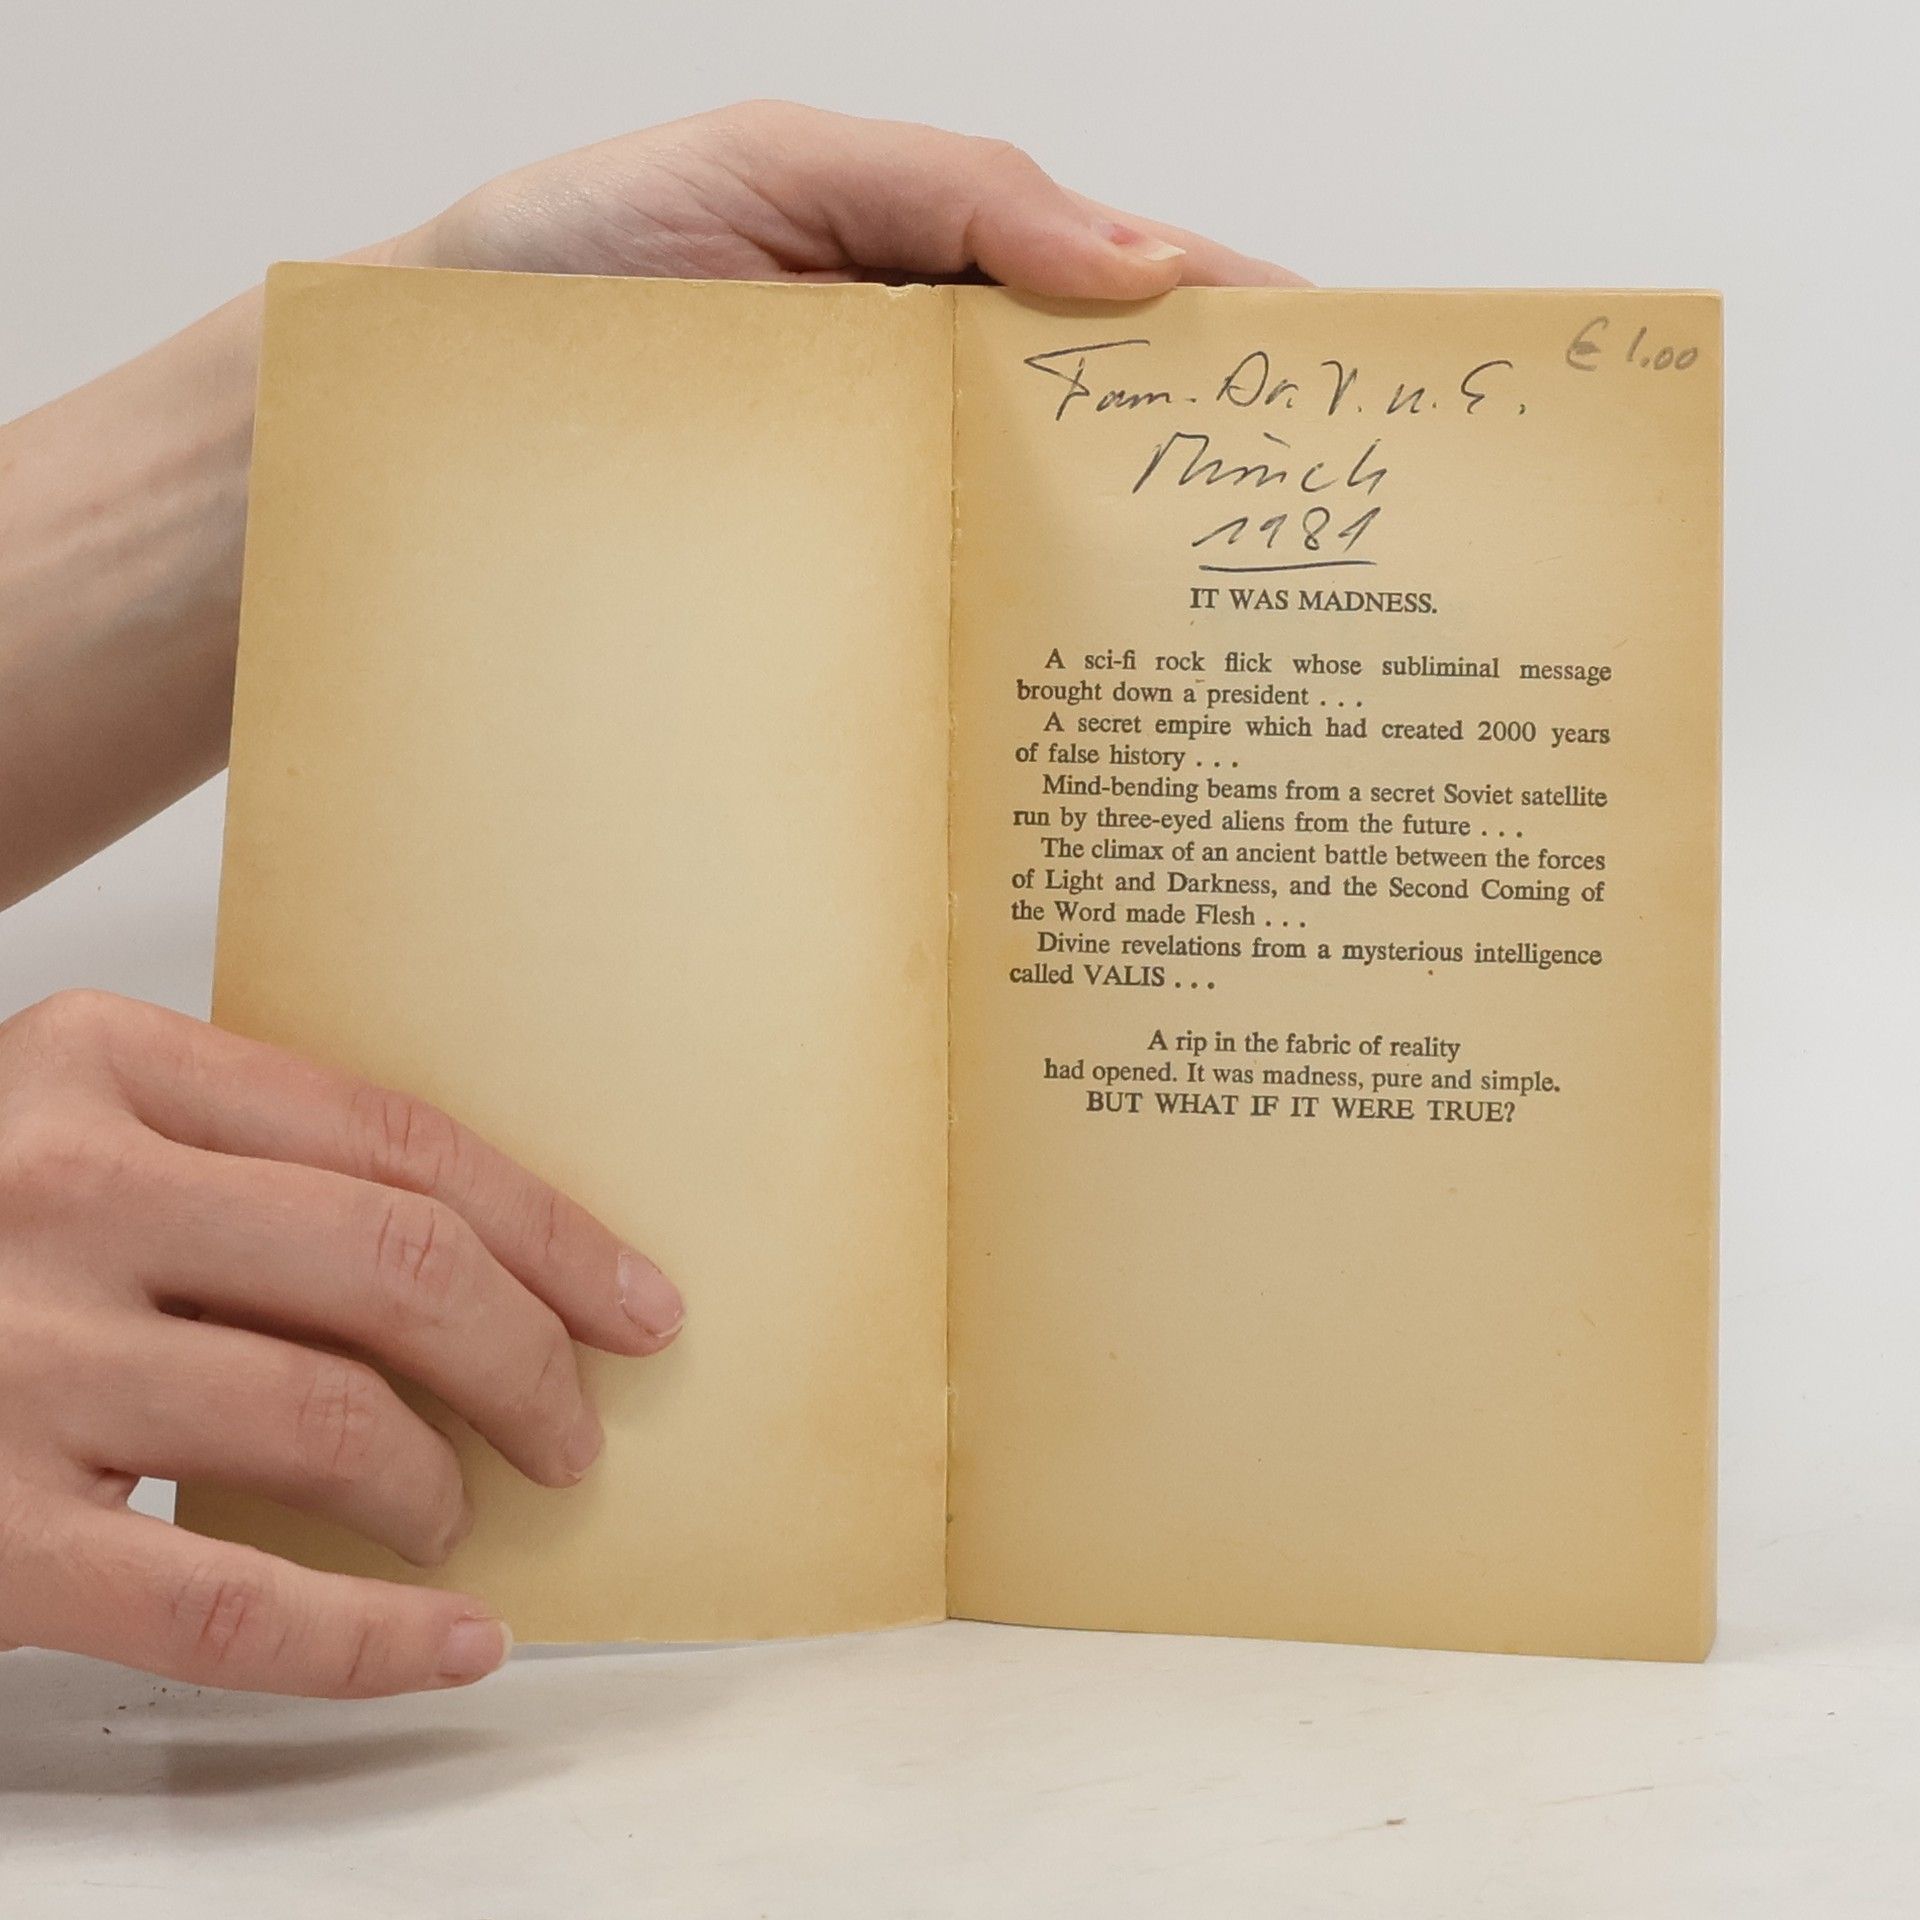 € 1.00
Fam. Dr. V. u. E.
Münch
1981
IT WAS MADNESS.
A sci-fi rock flick whose subliminal message
brought down a president . . .
A secret empire which had created 2000 years
of false history . . .
Mind-bending beams from a secret Soviet satellite
run by three-eyed aliens from the future . . .
The climax of an ancient battle between the forces
of Light and Darkness, and the Second Coming of
the Word made Flesh . . .
Divine revelations from a mysterious intelligence
called VALIS . . .
A rip in the fabric of reality
had opened. It was madness, pure and simple.
BUT WHAT IF IT WERE TRUE?